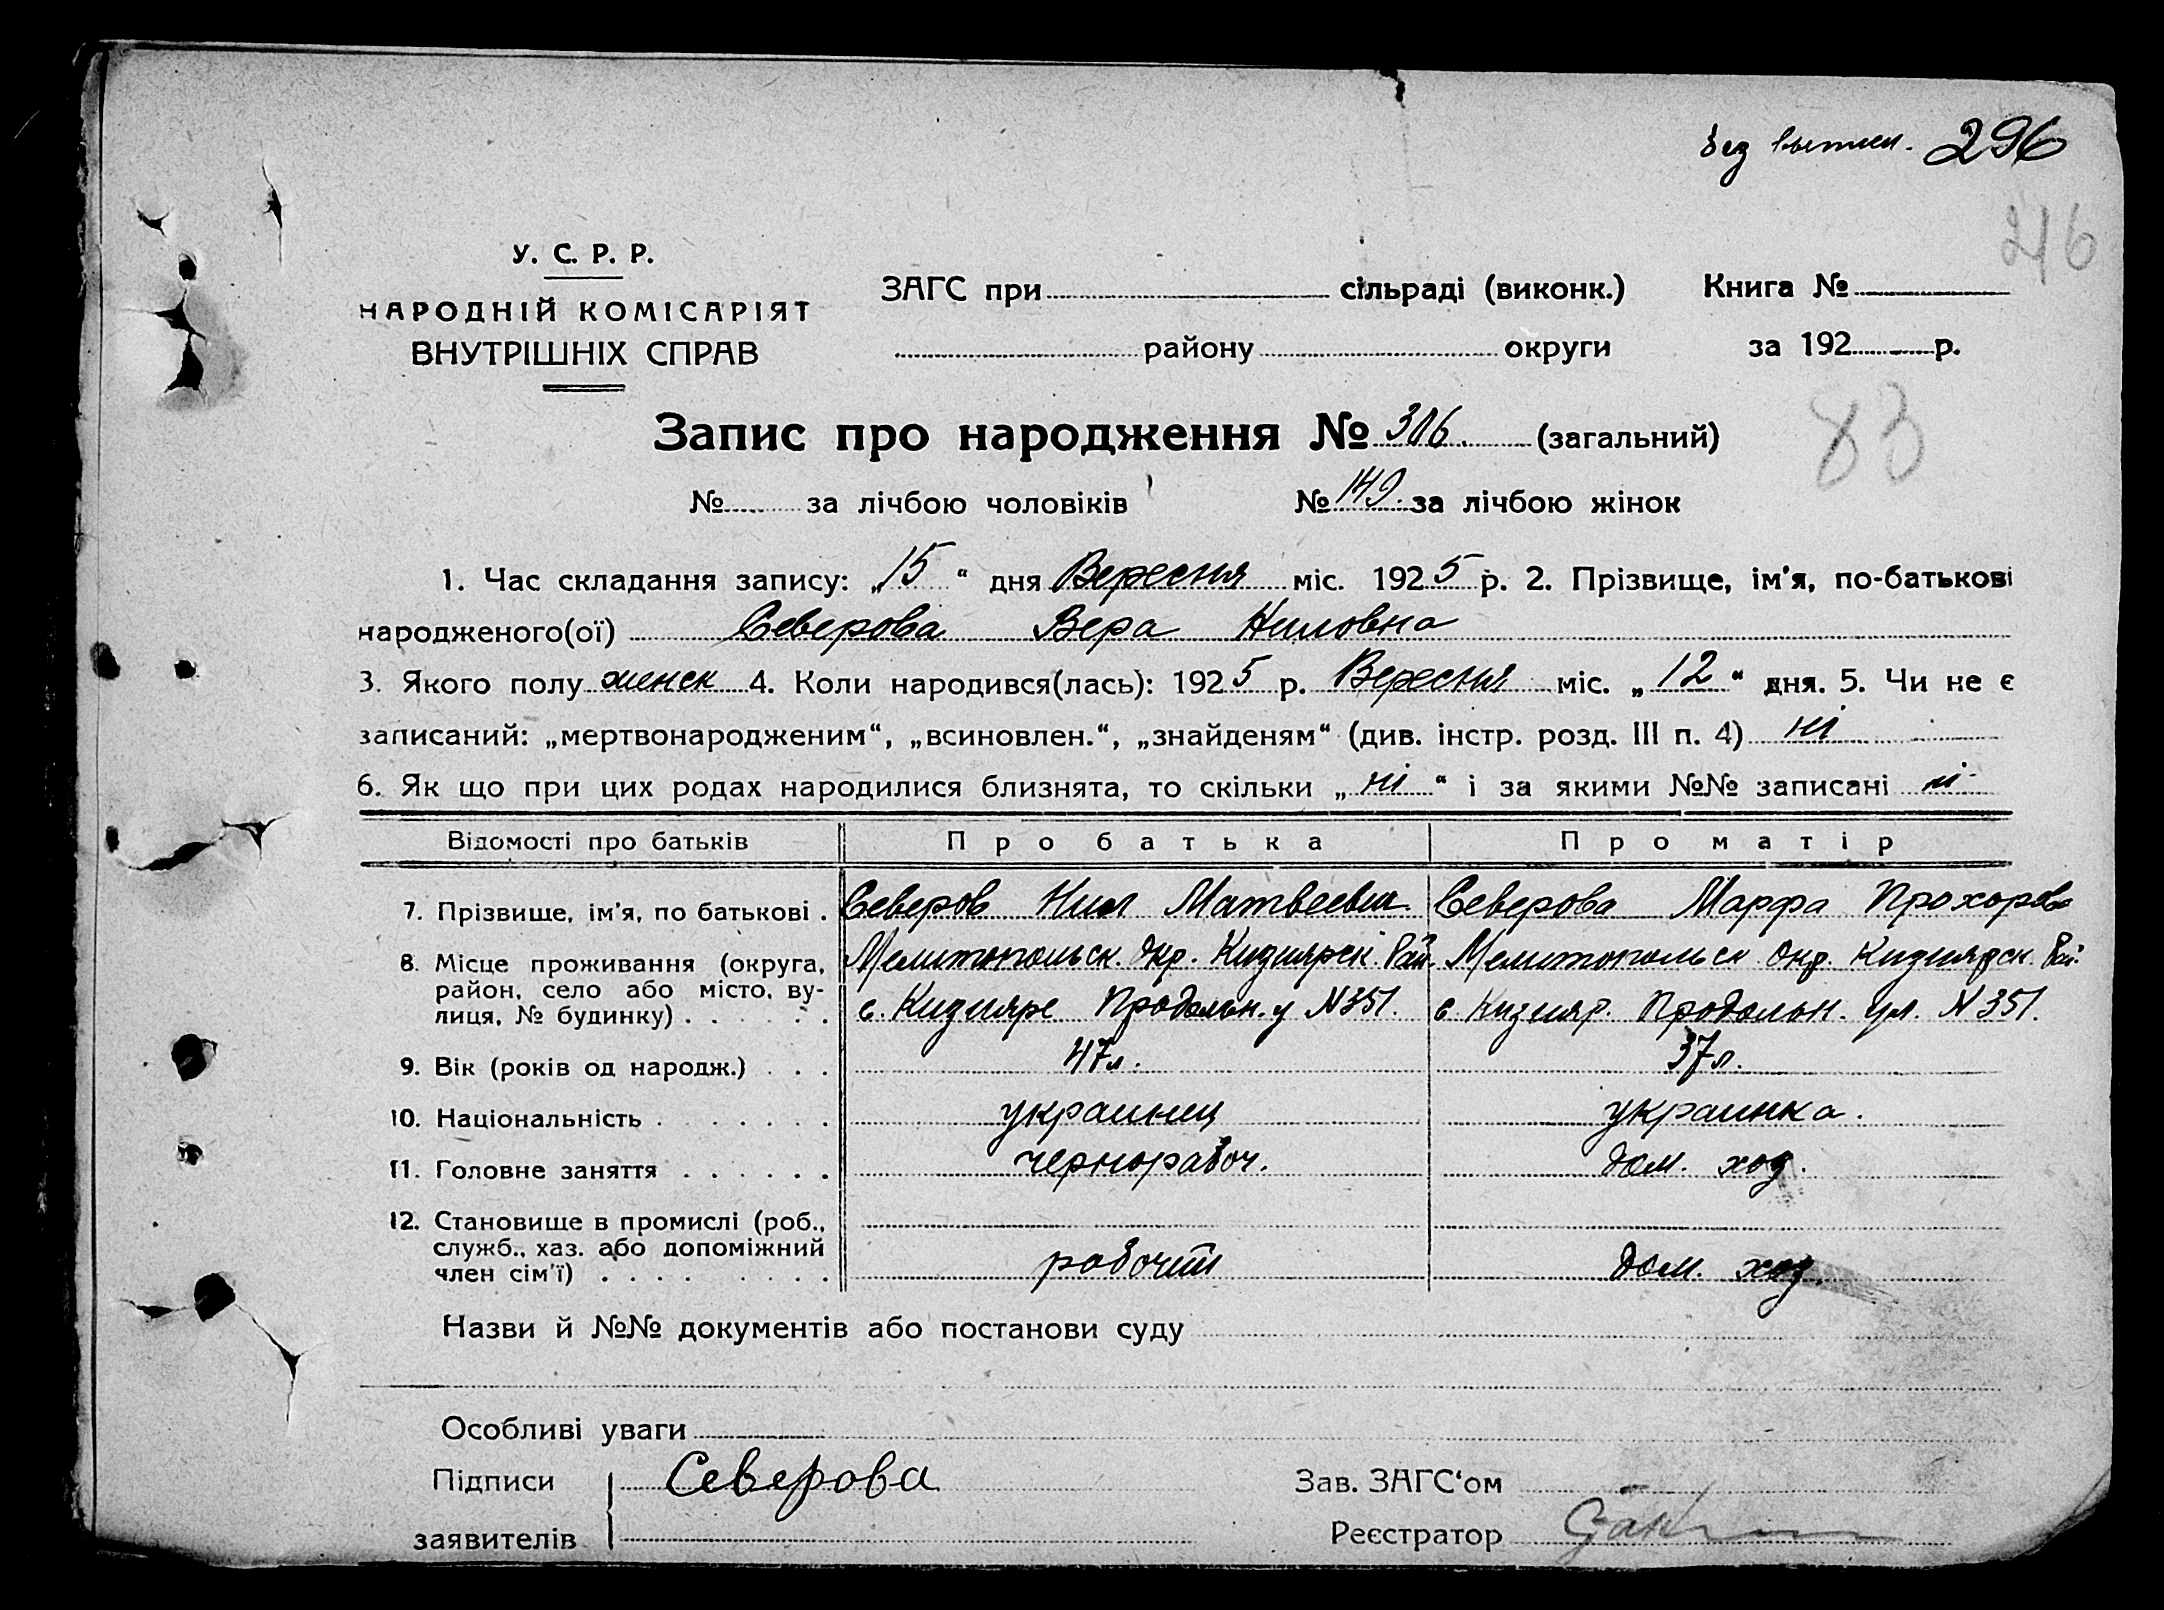 без выписи. 296
216
У. С. Р. Р.
НАРОДНІЙ КОМІСАРІЯТ
ВНУТРІШНІХ СПРАВ
ЗАГС при сільраді (виконк.) Книга №
району округи за 192 р.
Запис про народження № 306. (загальний)
83
№ за лічбою чоловіків № 149. за лічбою жінок
1. Час складання запису: „15“ дня Вересня міс. 1925 р. 2. Прізвище, ім'я, по-батькові
народженого(ої) Северова Вера Ниловна
3. Якого полу женск 4. Коли народився(лась): 1925 р. Вересня міс. „12“ дня. 5. Чи не є
записаний: „мертвонародженим“, „всиновлен.“, „знайденям“ (див. інстр. розд. III п. 4) ні
6. Як що при цих родах народилися близнята, то скільки „ні“ і за якими №№ записані ні
Відомості про батьків Про батька Про матір
7. Прізвище, ім'я, по батькові . Северов Нил Матвеевич Северова Марфа Прохоров
8. Місце проживання (округа, Мелитопольск. Окр. Кизиярск. Рай. Мелитопольск Окр. Кизиярск. Рай.
район, село або місто, ву-
лиця, № будинку) . . . . . . с. Кизияре Продольн. у N 351. с. Кизияр. Продольн. ул. N 351.
9. Вік (років од народж.) . . . 47 л. 37 л.
10. Національність . . . . . . . украинец украинка.
11. Головне заняття . . . . . . чернорабоч. дом. хоз.
12. Становище в промислі (роб.,
служб., хаз. або допоміжний
член сім'ї) . . . . . . . . рабочий дом. хоз.
Назви й №№ документів або постанови суду
Особливі уваги
Підписи Северова Зав. ЗАГС'ом
заявителів Реєстратор